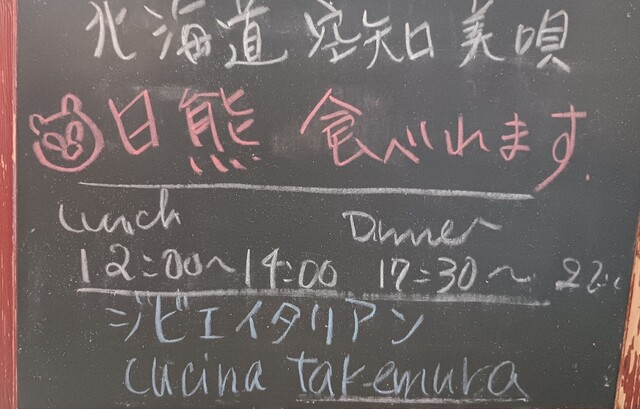 北海道 空知 美唄
日熊 食べれます.
Lunch Dinner
12:00〜14:00 17:30〜22:
ジビエイタリアン
cucina takemura